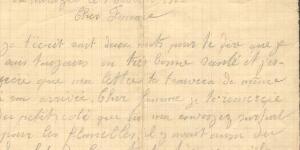 Cher Femme
je t'ecrit sest deux mots pour te dire que je
suis toujours en tres bonne santé et j'es-
pere que ma lettre te trouvera de meme
a son arrivée. Cher femme je te remercie
du petit colit que tu ma envoyez surtout
pour les flanelles, il y avait aussi du